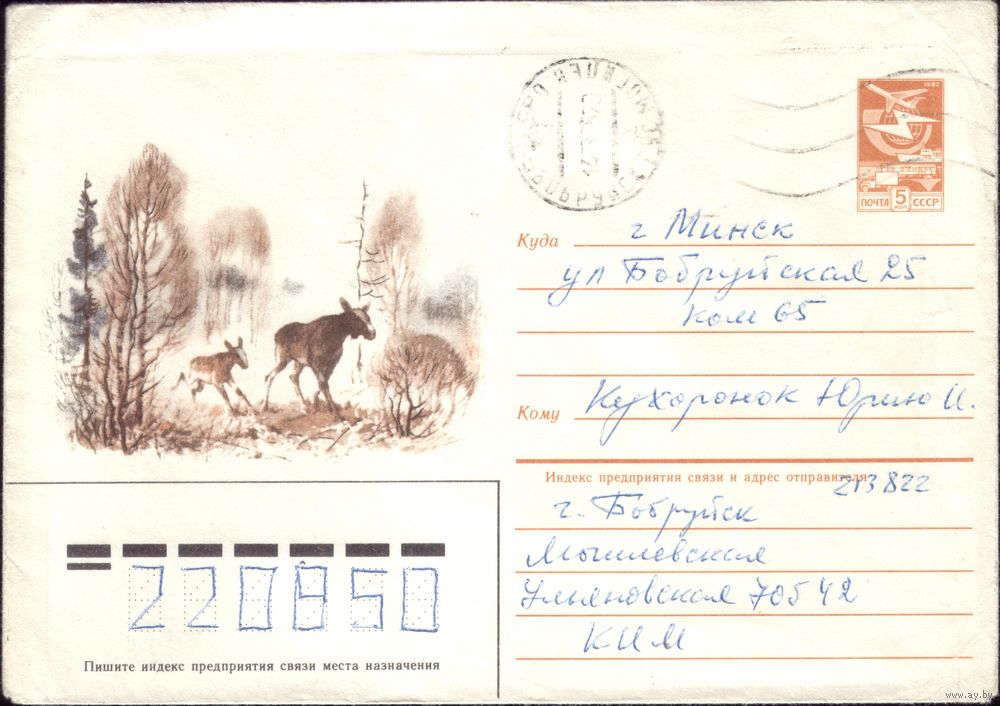 1982
ПОЧТА 5 КОП СССР
Куда г Минск
ул Бобруйская 25
ком 65
Кому Кухоронок Юрию И.
Индекс предприятия связи и адрес отправителя
213822
г. Бобруйск
Могилевская
Ульяновская 70б 42
КИМ
220850
Пишите индекс предприятия связи места назначения
www.ay.by